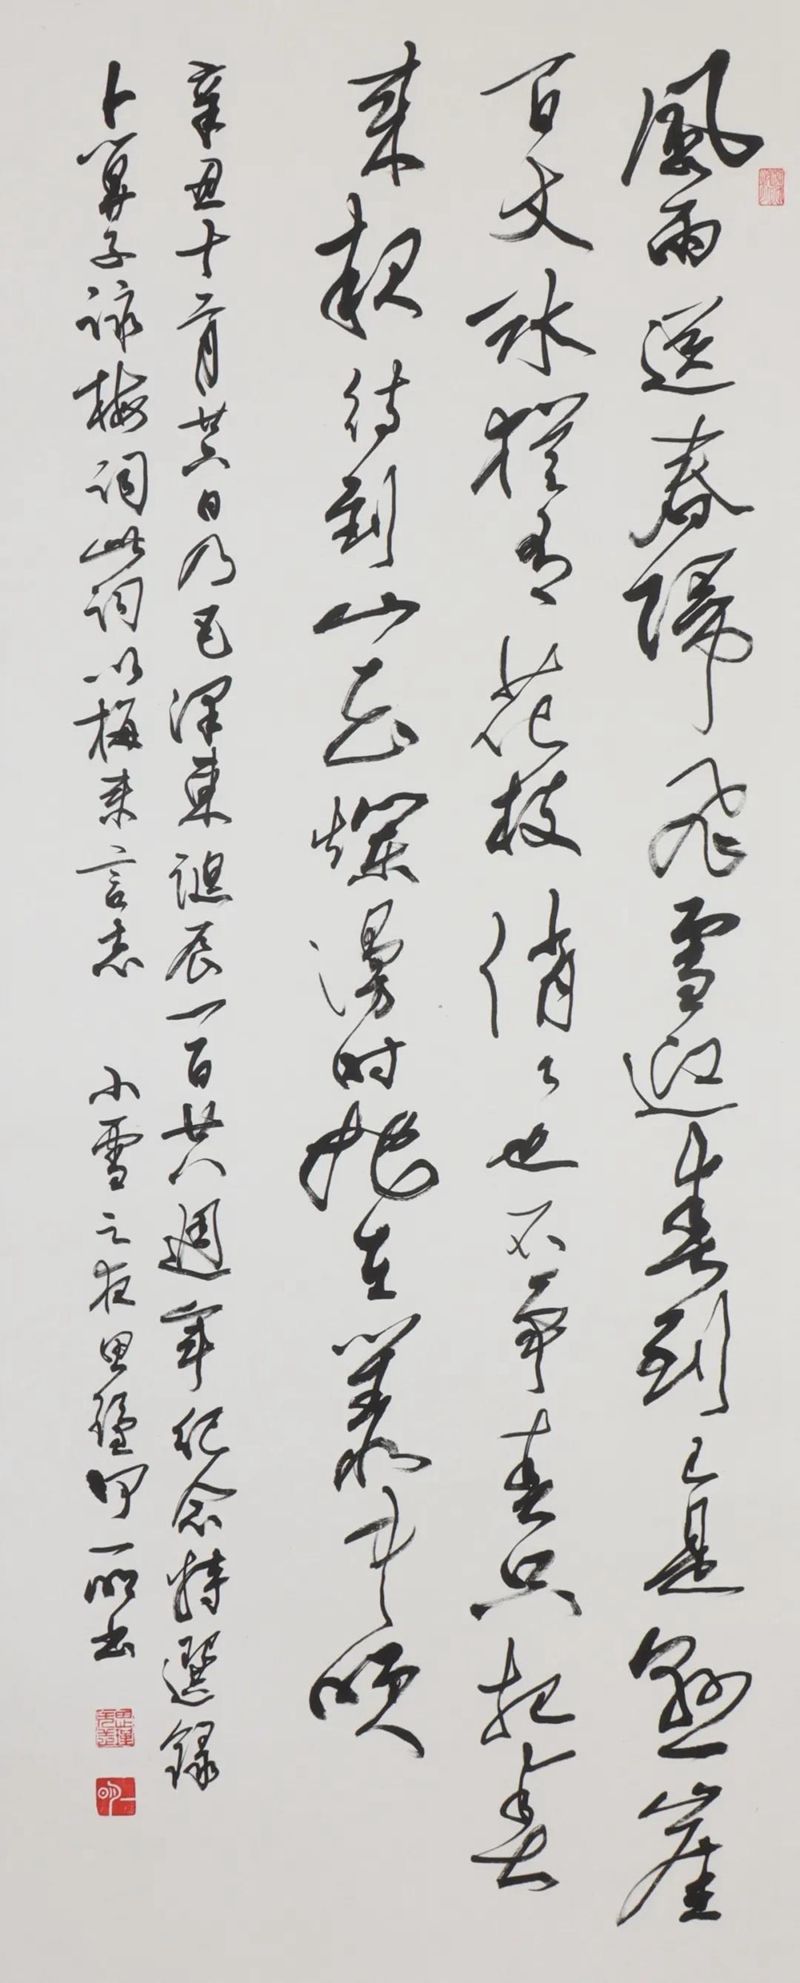 風雨送春歸飛雪迎春到已是懸崖
百丈冰猶有花枝俏々也不爭春只把春
來報待到山花爛漫時她在叢中咲
辛丑十二月廿六日乃毛澤東誕辰一百廿八週年紀念特選錄
卜算子詠梅詞此詞以梅來言志 小雪之夜 一明書